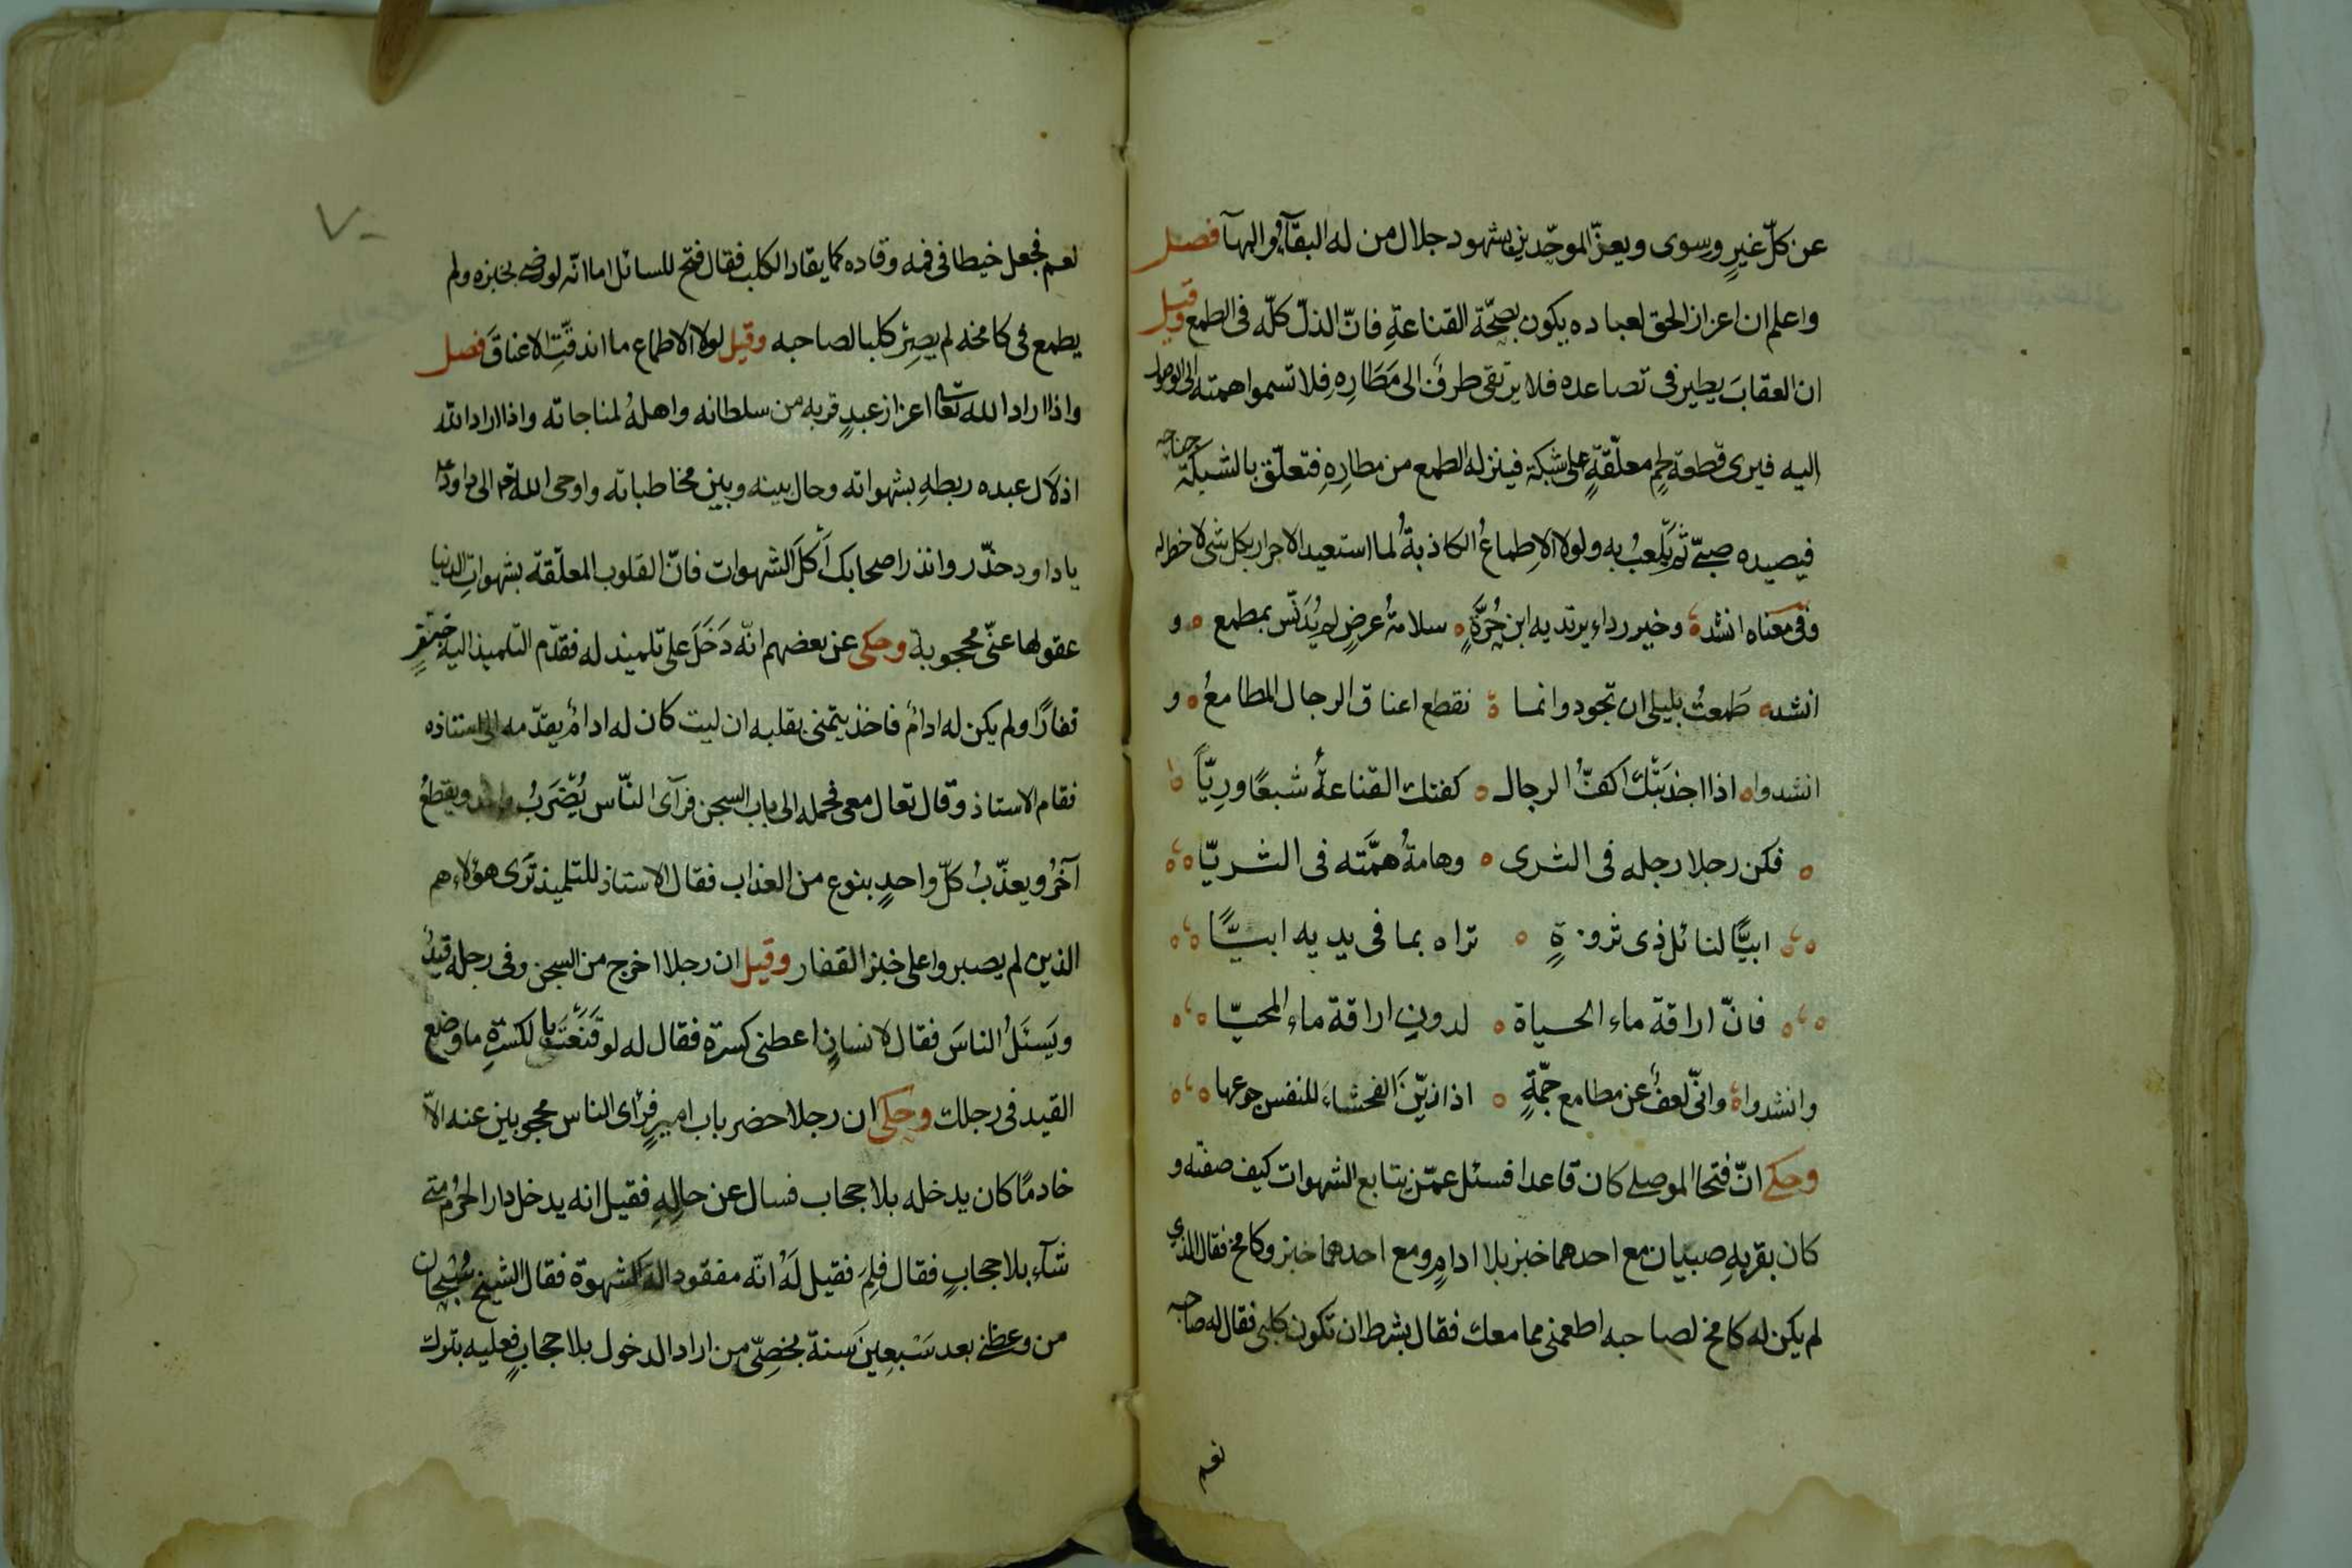 عن كلّ غيرٍ وسوى ويعزّ الموحّدين بشهود جلال من له البقآء والبهآ فصل
واعلم ان اعزاز الحق لعباده يكون بصحّة القناعةِ فانّ الذلّ كلّه فى الطمع وقيل
ان العقابَ يطير فى تصاعده فلا يرتقى طرفٌ الى مَطَارِهِ فلا تسموا همته الى الوصول
اليه فيرى قطعة لحمٍ معلّقةٍ على شبكة فينزله الطمع من مطارِهِ فتعلّق بالشبكة جناحه
فيصيده صبىّ ثم يلعبُ به ولولا الاِطماعُ الكاذبةُ لما استعبد الاحرار بكل شئ لا خطر له
وفى معناه انشد وخير رداءٍ يرتديه ابن حُرَّةٍ سلامةُ عرضٍ لم يُدَنّس بمطمع و
انشد طَمعتُ بليلى ان تجود وانما تقطع اعناق الرجال المطامعُ و
انشدوا اذا اجذبَتْكَ اكفّ الرجال كفتك القناعةُ شبعًا وريّاً
فكن رجلا رجله فى الثرى وهامةُ همَّته فى الثريّا
ابيًّا لنائل ذى ثروةٍ تراه بما فى يديه ابيًّا
فانّ اراقة ماء الحياة لدون اراقة ماء المحيّا
وانشدوا وانّى لعفٌ عن مطامع جمّةٍ اذا زيّنَ الفحشاءَ للنفس جوعها
وحكى انّ فتحا الموصلى كان قاعدا فسئل عمّن يتابع الشهوات كيف صفته و
كان بقربهِ صبيان مع احدهما خبز بلا ادامٍ ومع احدهما خبز وكامخ فقال الذي
لم يكن له كامخ لصاحبه اطعمنى مما معك فقال بشرط ان تكون كلبى فقال له صاحبه
نعم
٧٠
نعم فجعل خيطا فى فمه وقاده كما يقاد الكلب فقال فتح للسائل اما انّه لو رضى بخبزه ولم
يطمع فى كامخه لم يصِرْ كلبا لصاحبه وقيل لولا الاطماع ما اندقّتِ الاعناقَ فصل
واذا اراد الله تعالى اعزاز عبدٍ قربه من سلطانه واهلهُ لمناجاته واذا اراد الله
اذلال عبده ربطهِ بشهواته وحال بينه وبين مخاطباته واوحى الله تم الى داود عم
يا داود حذّر وانذر اصحابك أكلَ الشهوات فانّ القلوب المعلّقة بشهواتِ الدنيا
عقولها عنّى محجوبة وحكى عن بعضهم انّه دَخَلَ على تلميذ له فقدّم التلميذ اليه خبزٍ
قفارًا ولم يكن له ادامٌ فاخذ يتمنى بقلبه ان ليت كان له ادامٌ يقدّمه الى استاذه
فقام الاستاذ وقال تعال معى فحمله الى باب السجن فرآى النّاس يُضرَبُ واحد ويقطعُ
آخرُ ويعذّبُ كلّ واحدٍ بنوع من العذاب فقال الاستاذ للتلميذ ترَى هؤلاء هم
الذين لم يصبروا على خبز القفار وقيل ان رجلا اخرج من السجن وفى رجله قيدٌ
ويَسئَلُ الناسَ فقال لانسانٍ اعطنى كسرة فقال له لو قَنَعْتَ بالكسرةِ ما وضع
القيد فى رجلك وحكى ان رجلا حضر باب اميرٍ فرأى الناس محجوبين عنه الاّ
خادمًا كان يدخله بلا حجاب فسال عن حالِهِ فقيل انه يدخل دار الحرُم متى
شآء بلا حجابٍ فقال فلِمَ فقيل لَهُ انّه مفقود الة الشهوة فقال الشيخ سُبْحان
من وعظنى بعد سَبعِينَ سَنة بخصِىّ من اراد الدخول بلا حجابٍ فعليه بترك